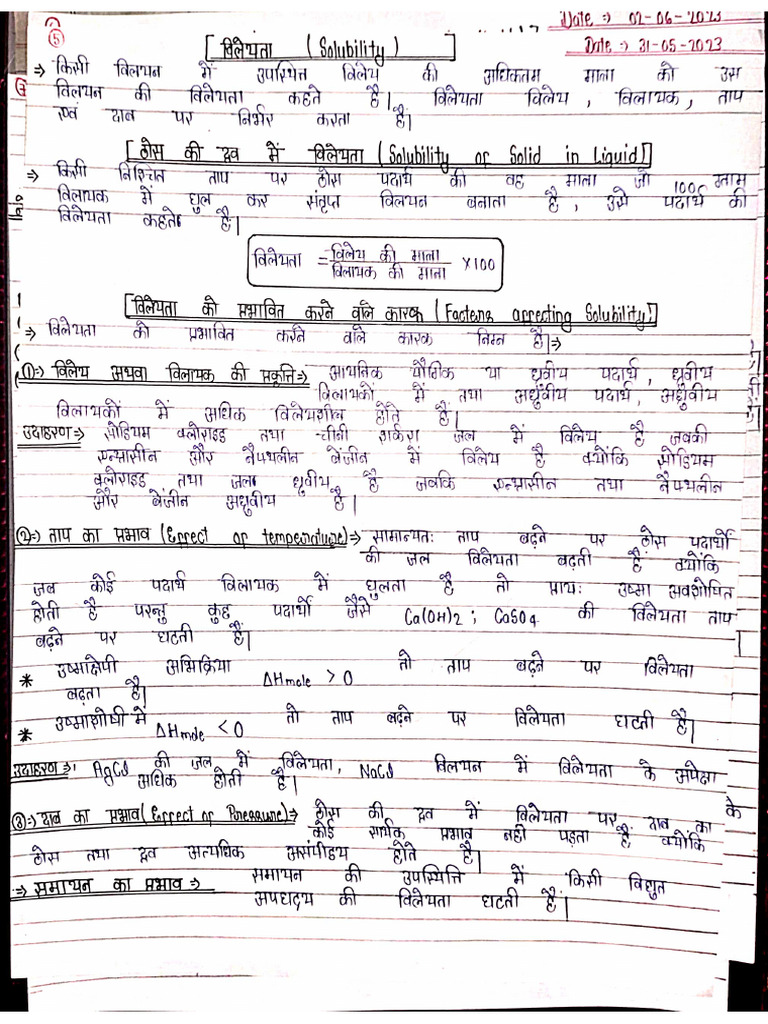 Date → 02-06-2023
⑤
Date → 31-05-2023
[विलेयता (Solubility)]
⇒ किसी विलयन में उपस्थित विलेय की अधिकतम मात्रा को उस
विलयन की विलेयता कहते हैं। विलेयता विलेय, विलायक, ताप
एवं दाब पर निर्भर करता है।
[ठोस की द्रव में विलेयता (Solubility of Solid in Liquid)]
⇒ किसी निश्चित ताप पर ठोस पदार्थ की वह मात्रा जो 100 ग्राम
विलायक में घुल कर संतृप्त विलयन बनाता है, उसे पदार्थ की
विलेयता कहते है।
विलेयता = विलेय की मात्रा / विलायक की मात्रा ×100
[विलेयता को प्रभावित करने वाले कारक (Factens affecting Solubility)]
⇒ विलेयता को प्रभावित करने वाले कारक निम्न है।⇒
(1)⇒ विलेय अथवा विलायक की प्रकृत्ति⇒ आयनिक यौगिक या ध्रुवीय पदार्थ, ध्रुवीय
विलायकों में तथा अध्रुवीय पदार्थ, अध्रुवीय
विलायकों में अधिक विलेयशील होते हैं।
उदाहरण⇒ सोडियम क्लोराइड तथा चीनी शर्करा जल में विलेय है जबकी
एन्थ्रासीन और नैफ्थलीन बेंजीन में विलेय है क्योंकि सोडियम
क्लोराइड तथा जल ध्रुवीय है जबकि एन्थ्रासीन तथा नैफ्थलीन
और बेंजीन अध्रुवीय है।
(2)⇒ ताप का प्रभाव (Effect of temperature)⇒ सामान्यतः ताप बढ़ने पर ठोस पदार्थो
की जल विलेयता बढ़ती हैं क्योंकि
जब कोई पदार्थ विलायक में घुलता है तो प्रायः उष्मा अवशोषित
होती है परन्तु कुछ पदार्थो जैसे Ca(OH)2; CaSO4 की विलेयता ताप
बढ़ने पर घटती है।
* उष्माक्षेपी अभिक्रिया ΔHmole > 0 तो ताप बढ़ने पर विलेयता
बढ़ता है।
* उष्माशोषी में ΔHmole < 0 तो ताप बढ़ने पर विलेयता घटती है।
उदाहरण⇒ AgCl की जल में विलेयता, NaCl विलयन में विलेयता के अपेक्षा
अधिक होती है।
(3)⇒ दाब का प्रभाव (Effect of Pressure)⇒ ठोस की द्रव में विलेयता पर दाब का के
कोई सार्थक प्रभाव नही पड़ता है क्योंकि
ठोस तथा द्रव अत्यधिक असंपीडय होते है।
⇒ समायन का प्रभाव ⇒ समायन की उपस्थिति में किसी विद्युत
अपघट्य की विलेयता घटती है।